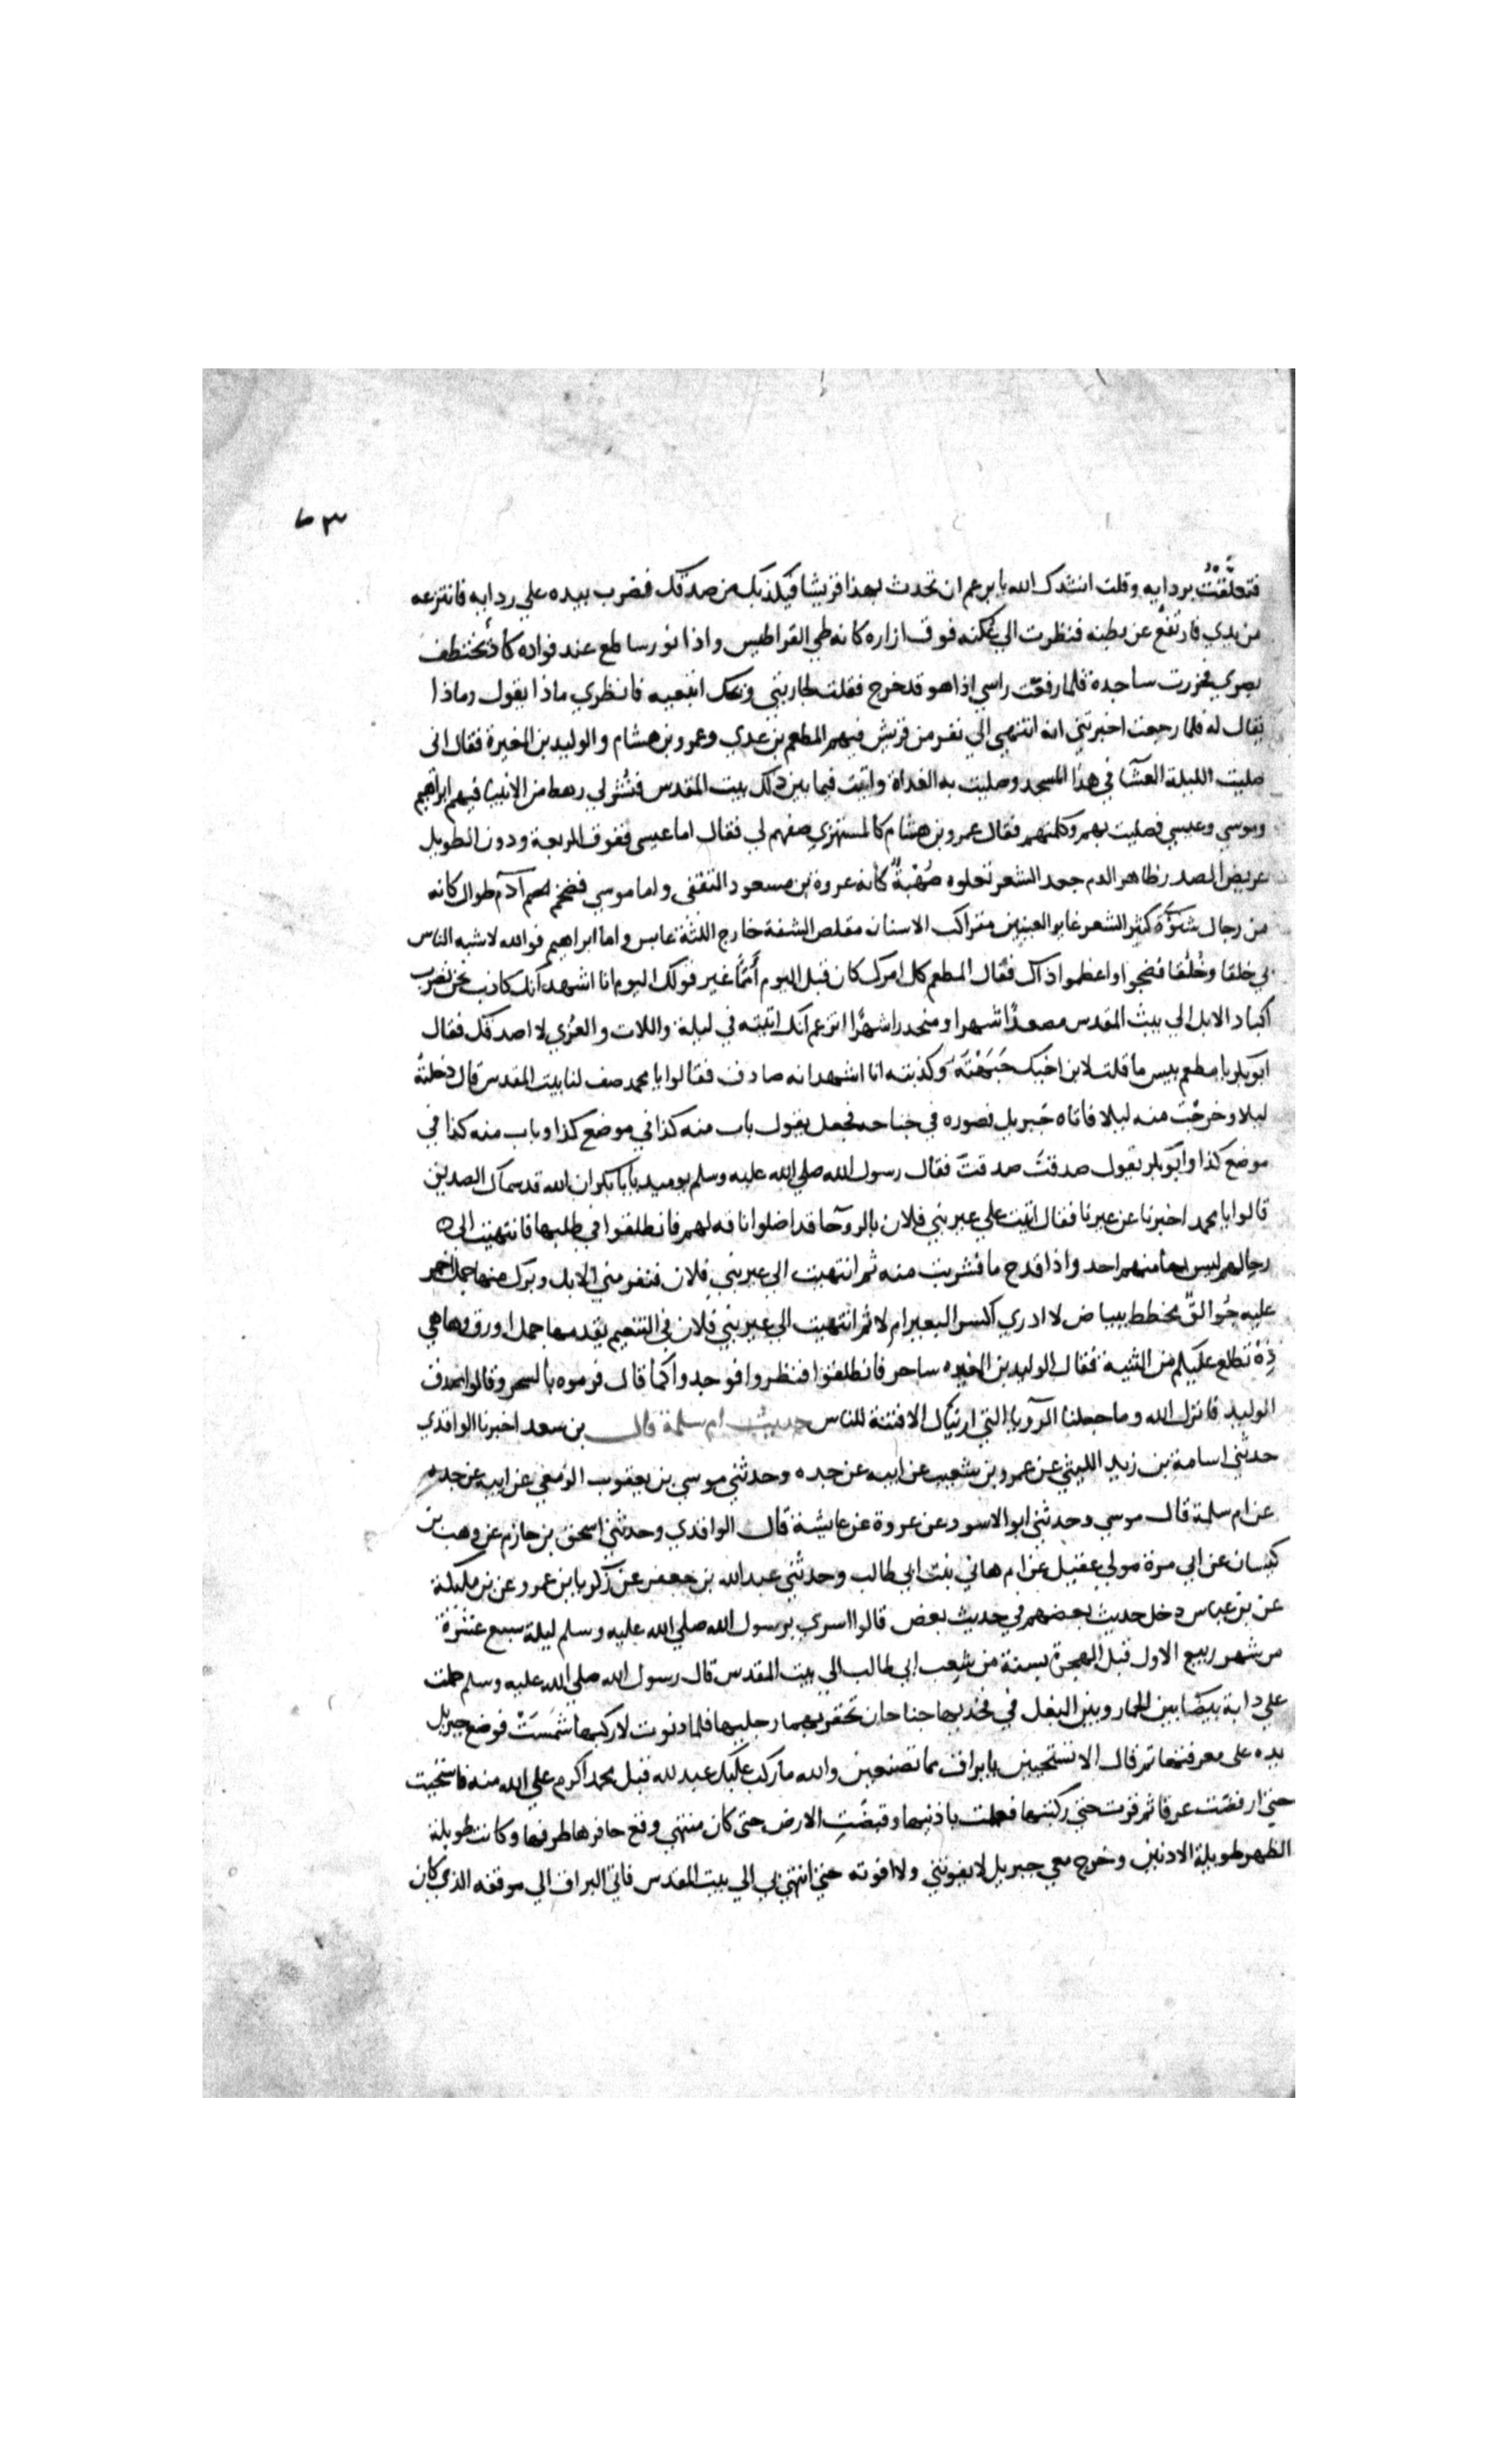 ٦٣
فتعلَّقْتُ بردايه وقلت انشدك الله يا بن عم ان تحدث بهذا قريشا فيكذبك من صدقك فضرب بيده علي ردايه فانتزعه
من يدي فارتفع عن بطنه فنظرت الي عُكَنه فوق ازاره كانه طي القراطيس واذا نور ساطع عند فواده كاد يختطف
بصري فخررت ساجدة فلما رفعت راسي اذا هو قد خرج فقلت لجاريتي ويحك اتبعيه فانظري ماذا يقول وماذا
يقال له فلما رجعت اخبرتني انه انتهي الي نفر من قريش فيهم المطعم بن عدي وعمرو بن هشام والوليد بن المغيرة فقال اني
صليت الليلة العشآ في هذا المسجد وصليت به الغداة واتيت فيما بين ذلك بيت المقدس فنُشر لي رهط من الانبيآ فيهم ابراهيم
وموسي وعيسي فصليت بهم وكلمتهم فقال عمرو بن هشام كالمستهزي صفهم لي فقال اما عيسي ففوق الربعة ودون الطويل
عريض الصدر ظاهر الدم جعد الشعر تعلوه صُهْبةٌ كانه عروة بن مسعود الثقفي واما موسي فضخم ادم طوال كانه
من رجال شنؤة كثير الشعر غاير العينين متراكب الاسنان مقلص الشفة خارج اللثة عابس واما ابراهيم فوالله لاشبه الناس
بي خلقا وخُلُقا فضجوا واعظموا ذاك فقال المطعم كل امرك كان قبل اليوم أمَمًا غير قولك اليوم انا اشهد انك كاذب نحن نضرب
اكباد الابل الي بيت المقدس مصعدًا شهرا ومنحدرا شهرًا اتزعم انك اتيته في ليلة واللات والعزي لا اصدقك فقال
ابو بكر يا مطعم بيس ما قلت لابن اخيك جَبَهْتَهُ وكذبته انا اشهد انه صادق فقالوا يا محمد صف لنا بيت المقدس قال دخلته
ليلا وخرجت منه ليلا فاتاه جبريل فصوره في جناحه فجعل يقول باب منه كذا في موضع كذا وباب منه كذا في
موضع كذا وابو بكر يقول صدقت صدقت فقال رسول الله صلي الله عليه وسلم يوميد يا با بكر ان الله قد سماك الصديق
قالوا يا محمد اخبرنا عن عيرنا فقال اتيت علي عير بني فلان بالروحآ قد اضلوا ناقه لهم فانطلقوا في طلبها فانتهيت الي
رحالهم ليس بها منهم احد واذا قدح ما فشربت منه ثم انتهيت الي عير بني فلان فنفر مني الابل وبرك منها جمل احمر
عليه جُوالق مخطط ببياض لا ادري اكسر البعير ام لا ثم انتهيت الي عير بني فلان في التنعيم يقدمها جمل اورق وها هي
ذِهْ تطلع عليكم من الثنية فقال الوليد بن المغيره ساحر فانطلقوا فنظروا فوجدوا كما قال فرموه بالسحر وقالوا صدق
الوليد فانزل الله وما جعلنا الرويا التي اريناك الا فتنة للناس حديث ام سلمة قال بن سعد اخبرنا الواقدي
حدثني اسامة بن زيد الليثي عن عمرو بن شعيب عن ابيه عن جده وحدثني موسي بن يعقوب الزمعي عن ابيه عن جده
عن ام سلمة قال موسي وحدثني ابو الاسود عن عروة عن عايشة قال الواقدي وحدثني اسحق بن حازم عن وهب بن
كيسان عن ابي مرة مولي عقيل عن ام هاني بنت ابي طالب وحدثني عبد الله بن جعفر عن زكريا بن عمرو عن بن مليكة
عن بن عباس دخل حديث بعضهم في حديث بعض قالوا اسري برسول الله صلي الله عليه وسلم ليلة سبع عشرة
من شهر ربيع الاول قبل الهجرة بسنة من شعب ابي طالب الي بيت المقدس قال رسول الله صلي الله عليه وسلم حملت
علي دابة بيضا بين الحمار وبين البغل في فخديها جناحان تحفز بهما رجليها فلما دنوت لاركبها شَمَسَتْ فوضع جبريل
يده علي معرفتها ثم قال الا تستحيين يا براق مما تصنعين والله ما ركب عليك عبد لله قبل محمد اكرم علي الله منه فاستحيت
حتي ارفضت عرقا ثم قرت حتي ركبتها فعملت باذنيها وقبضت الارض حتي كان منتهي وقع حافرها طرفها وكانت طويلة
الظهر طويلة الاذنين وخرج معي جبريل لا يفوتني ولا افوته حتي انتهي بي الي بيت المقدس فاتي البراق الي موقفه الذي كان